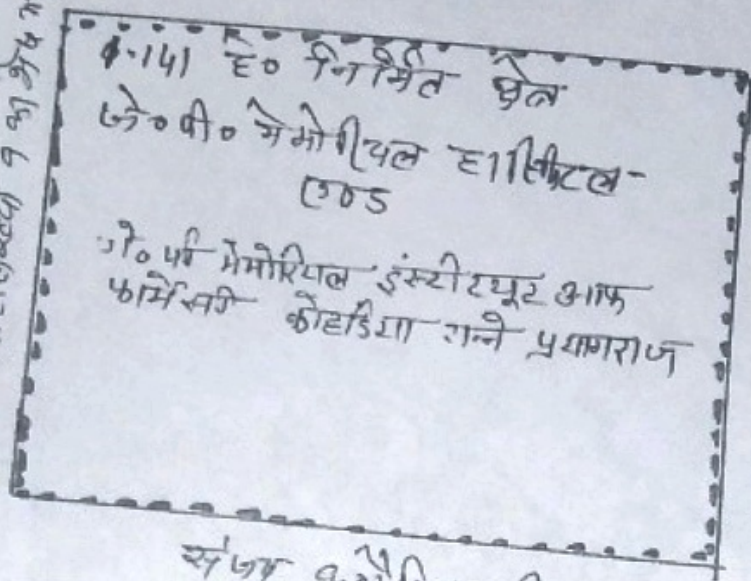 1.141 हे० निर्मित क्षेत्र
जे० पी० मेमोरियल हास्पिटल-
एण्ड
जे० पी मेमोरियल इंस्टीटयूट आफ
फार्मेसी कोहडिया गन्ने प्रयागराज
संजय